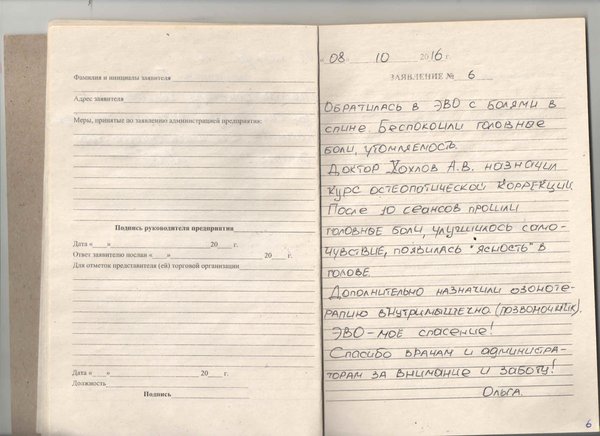 Фамилия и инициалы заявителя
Адрес заявителя
Меры, принятые по заявлению администрацией предприятия:
Подпись руководителя предприятия
Дата «___» 20 г.
Ответ заявителю послан «___» 20 г.
Для отметок представителя (ей) торговой организации
Дата «___» 20 г.
Должность
Подпись
«08 10 2016 г.
ЗАЯВЛЕНИЕ № 6
Обратилась в ЭВО с болями в
спине. Беспокоили головные
боли, утомляемость.
Доктор Хохлов А.В. назначил
курс остеопотической коррекции
После 10 сеансов прошли
головные боли, улучшилось само-
чувствие, появилась "ясность" в
голове.
Дополнительно назначили озоноте-
рапию внутримышечно (позвоночник).
ЭВО – моё спасение!
Спасибо врачам и администра-
торам за внимание и заботу!
Ольга.
6